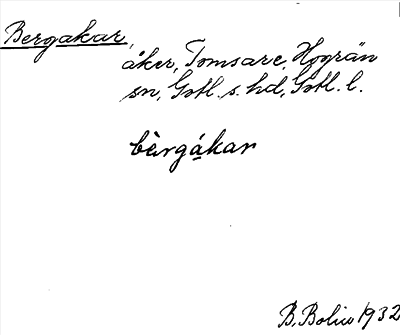 Bergakar,
åker, Tomsare, Hogrän
sn, Gotl. s. hd, Gotl. l.
bèrgákar
B. Bolin 1932